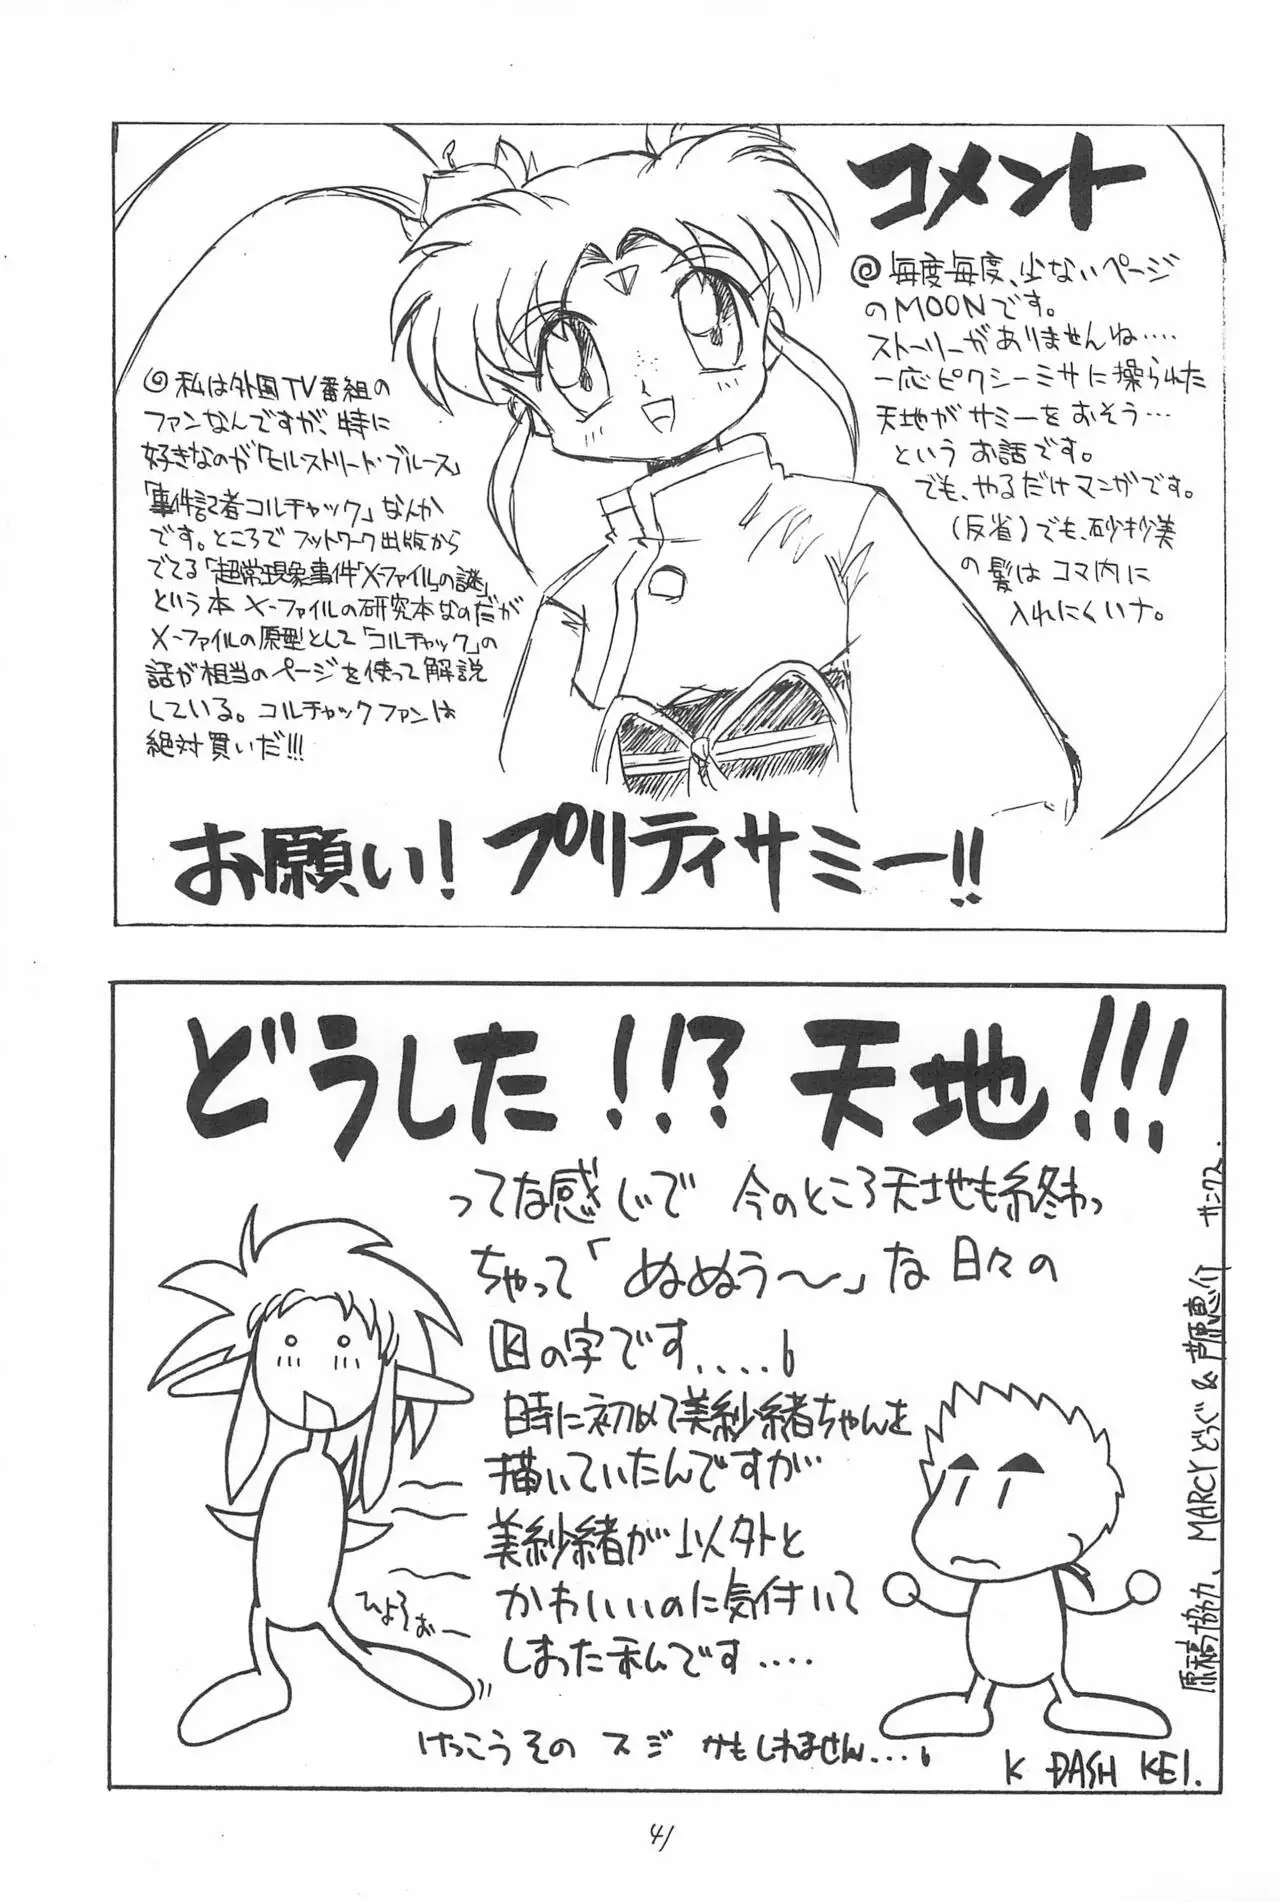 コメント
◎毎度毎度、少ないページ
のMOONです。
ストーリーがありませんね‥‥
一応ピクシーミサに操られた
天地がサミーをおそう…
というお話です。
でも、やるだけマンガです。
(反省)でも、砂沙美
の髪はコマ内に
入れにくいナ。
◎私は外国TV番組の
ファンなんですが、特に
好きなのが「ヒルストリート・ブルース」
「事件記者コルチャック」なんか
です。ところでフットワーク出版から
でてる「超常現象事件「X-ファイル」の謎」
という本 X-ファイルの研究本なのだが
X-ファイルの原型として「コルチャック」の
話が相当のページを使って解説
している。コルチャックファンは
絶対買いだ!!!
お願い!プリティサミー!!
どうした!!?天地!!!
ってな感じで 今のところ天地も終わっ
ちゃって「ぬぬぅ〜」な日々の
図の字です....。
時に初めて美紗緒ちゃんを
描いていたんですが
美紗緒が以外と
かわいいのに気付いて
しまった私です....
けっこうその スジ かもしれません...。
ひょろぉー
原稿協力、MARCYどぅぐ&芦原恵介 サンクス.
K DASH KEI.
41